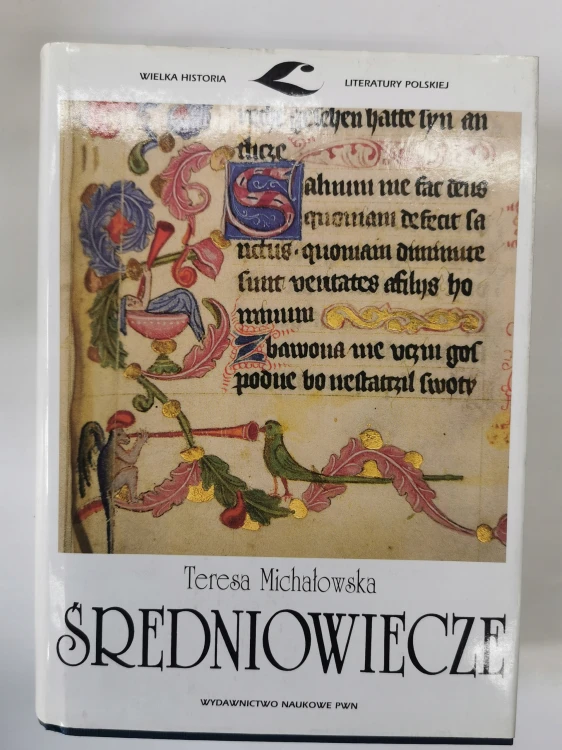 WIELKA HISTORIA LITERATURY POLSKIEJ
hatte syn an
Salvum me fac deus
quoniam defecit sa
nctus · quoniam diminute
sunt veritates afilys ho
minum
Zbawona me uczin gos
podne bo nestatczil swoty
Teresa Michałowska
ŚREDNIOWIECZE
WYDAWNICTWO NAUKOWE PWN